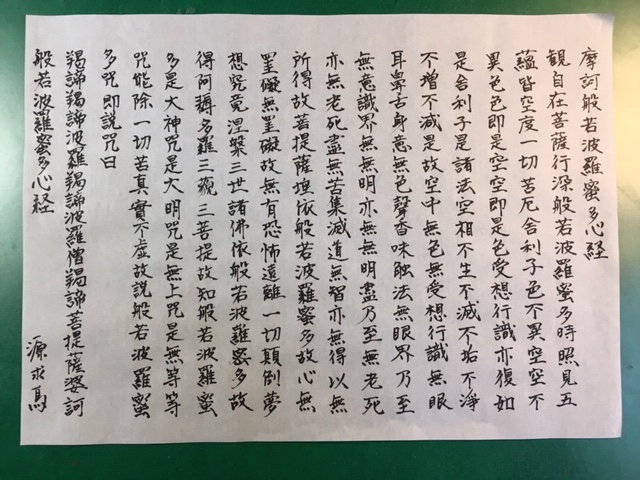 摩訶般若波羅蜜多心経
観自在菩薩行深般若波羅蜜多時照見五
蘊皆空度一切苦厄舎利子色不異空空不
異色色即是空空即是色受想行識亦復如
是舎利子是諸法空相不生不滅不垢不浄
不増不減是故空中無色無受想行識無眼
耳鼻舌身意無色聲香味触法無眼界乃至
無意識界無無明亦無無明盡乃至無老死
亦無老死盡無苦集滅道無智亦無得以無
所得故菩提薩埵依般若波羅蜜多故心無
罣礙無罣礙故無有恐怖遠離一切顛倒夢
想究竟涅槃三世諸佛依般若波羅蜜多故
得阿耨多羅三藐三菩提故知般若波羅蜜
多是大神咒是大明咒是無上咒是無等等
咒能除一切苦真實不虚故説般若波羅蜜
多咒即説咒曰
羯諦羯諦波羅羯諦波羅僧羯諦菩提薩婆訶
般若波羅蜜多心経
源求馬